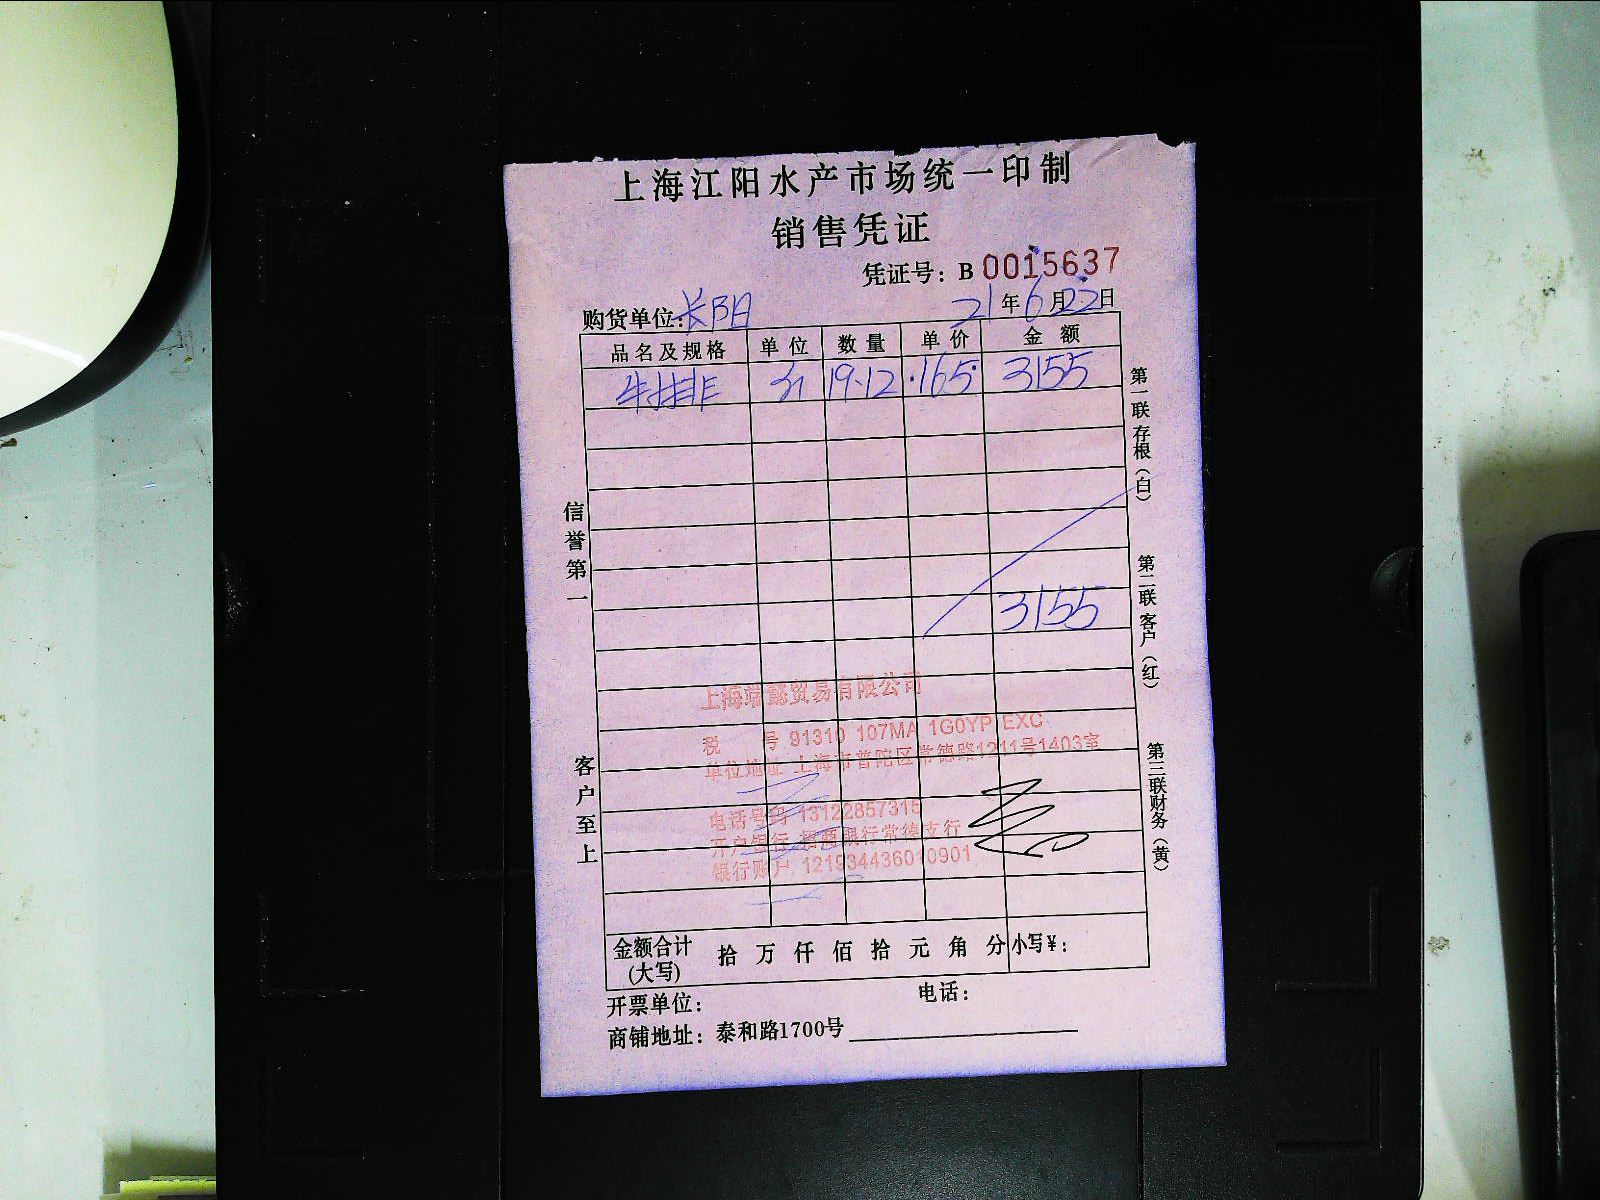 上海江阳水产市场统一印制
销售凭证
凭证号：B 0015637
购货单位：长阳 21年6月22日
品名及规格 单位 数量 单价 金额
牛排 19.12 165 3155
3155
上海端懿贸易有限公司
税 号 91310 107MA 1G0YP EXC
单位地址 上海市普陀区常德路1211号1403室
电话号码 13122857315
开户银行 招商银行常德支行
银行账户 121934436010901
金额合计(大写) 拾 万 仟 佰 拾 元 角 分 小写¥：
开票单位： 电话：
商铺地址：泰和路1700号
信誉第一
客户至上
第一联存根（白）
第二联客户（红）
第三联财务（黄）